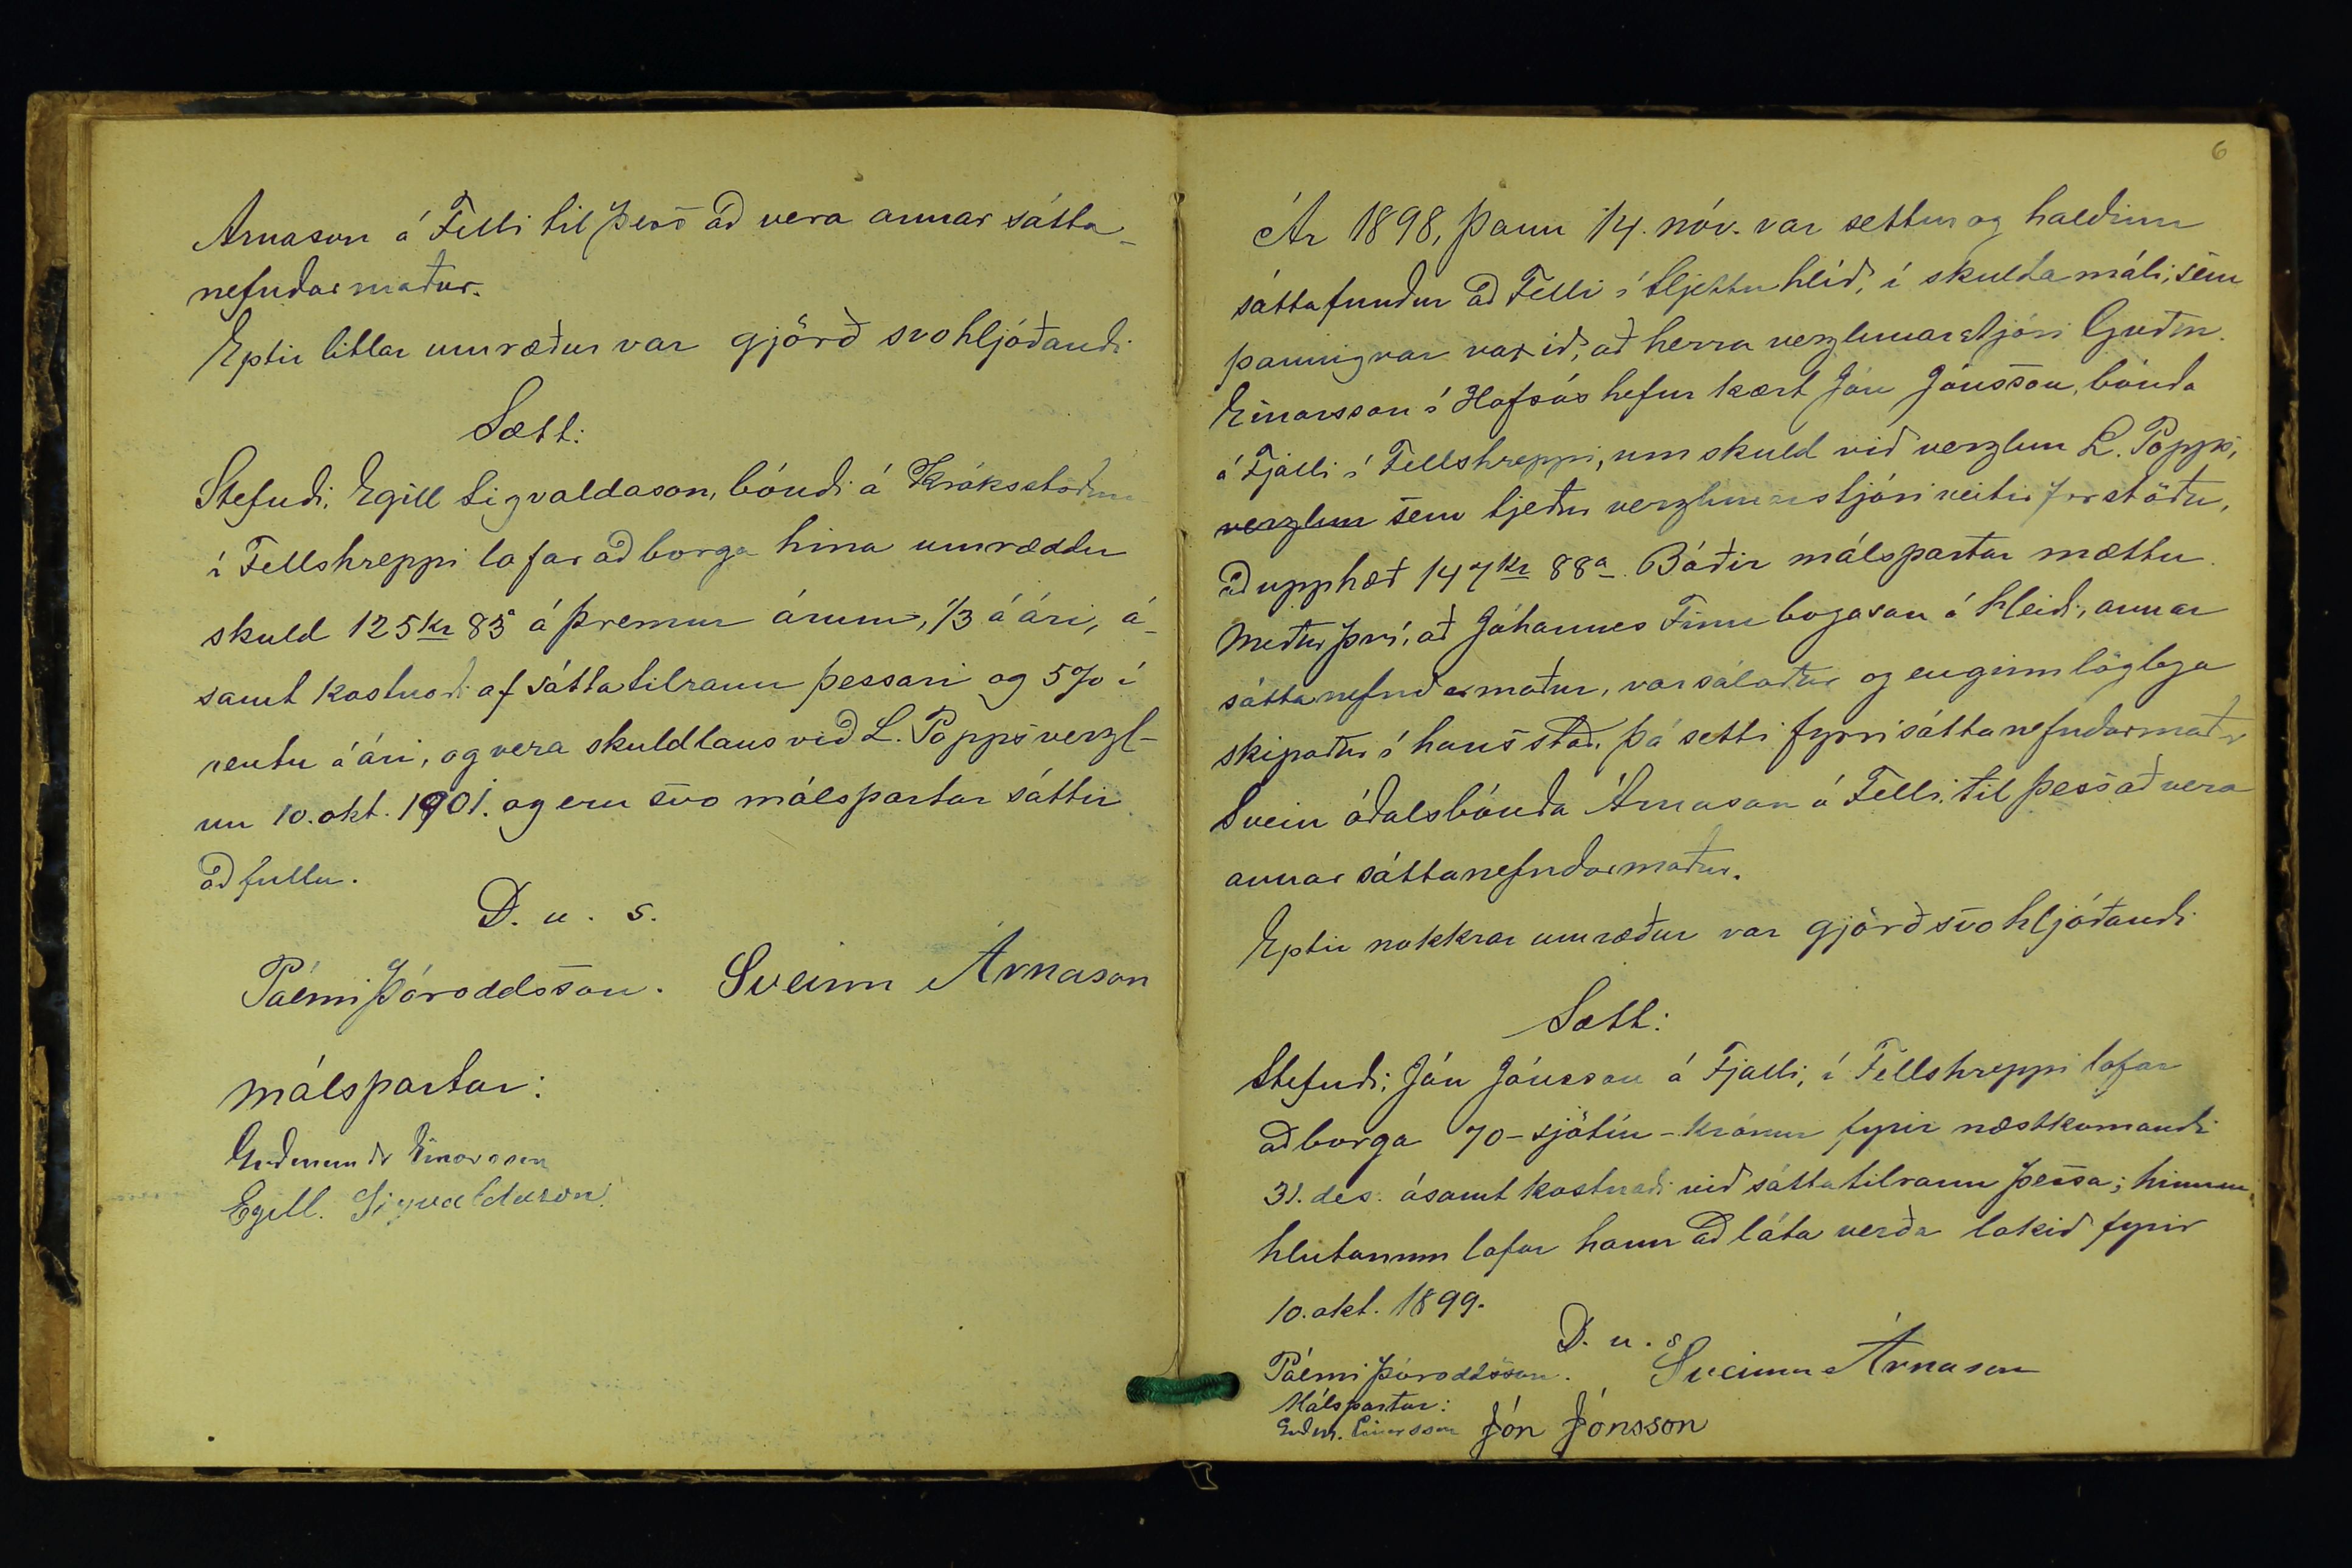 Arnason á Felli til þess að vera annar sátta-
nefndarmaður.
Eptir litlar umræður var gjörð svohljóðandi
Sætt:
Stefndi, Egill Sigvaldason, bóndi á Kráksstöðum
í Fellshreppi lofar að borga hina umræddu
skuld 125 kr 85 á þremur árum, 1/3 á ári, á-
samt kostnaði af sáttatilraun þessari og 5% í
rentu á ári, og vera skuldlaus við L. Popps verzl-
un 10. okt. 1901. og eru svo málspartar sáttir
að fullu.
D. u. s.
Pálmi Þóroddsson. Sveinn Árnason
Málspartar:
Guðmundr Einarsson
Egill. Sigvaldason.
6
Ár 1898, þann 14. nóv. var settur og haldinn
sáttafundur að Felli í Sljettuhlíð, í skuldamáli, sem
þannig var varið, að herra verzlunarstjóri Guðm.
Einarsson í Hofsós hefur kært Jón Jónsson, bónda
á Fjalli í Fellshreppi, um skuld við verzlun L. Popps,
verzlun sem tjeður verzlunarstjóri veitir forstöðu,
að upphæð 147 kr 88 a. Báðir málspartar mættu.
Með því, að Jóhannes Finnbogason á Heiði, annar
sáttanefndarmaður, var sálaður og enginn löglega
skipaður í hans stað, þá setti fyrri sáttanefndarmaðr
Svein óðalsbónda Árnason á Felli, til þess að vera
annar sáttanefndarmaður.
Eptir nokkrar umræður var gjörð svohljóðandi
Sætt:
Stefndi; Jón Jónsson á Fjalli, í Fellshreppi lofar
að borga 70 - sjötíu - krónur fyrir næstkomandi
31. des. ásamt kostnaði við sáttatilraun þessa; hinum
hlutanum lofar hann að láta verða lokið fyrir
10. okt. 1899.
D. u. s
Pálmi Þóroddsson. Sveinn Árnason
Málspartar:
Guðm. Einarsson Jón Jónsson